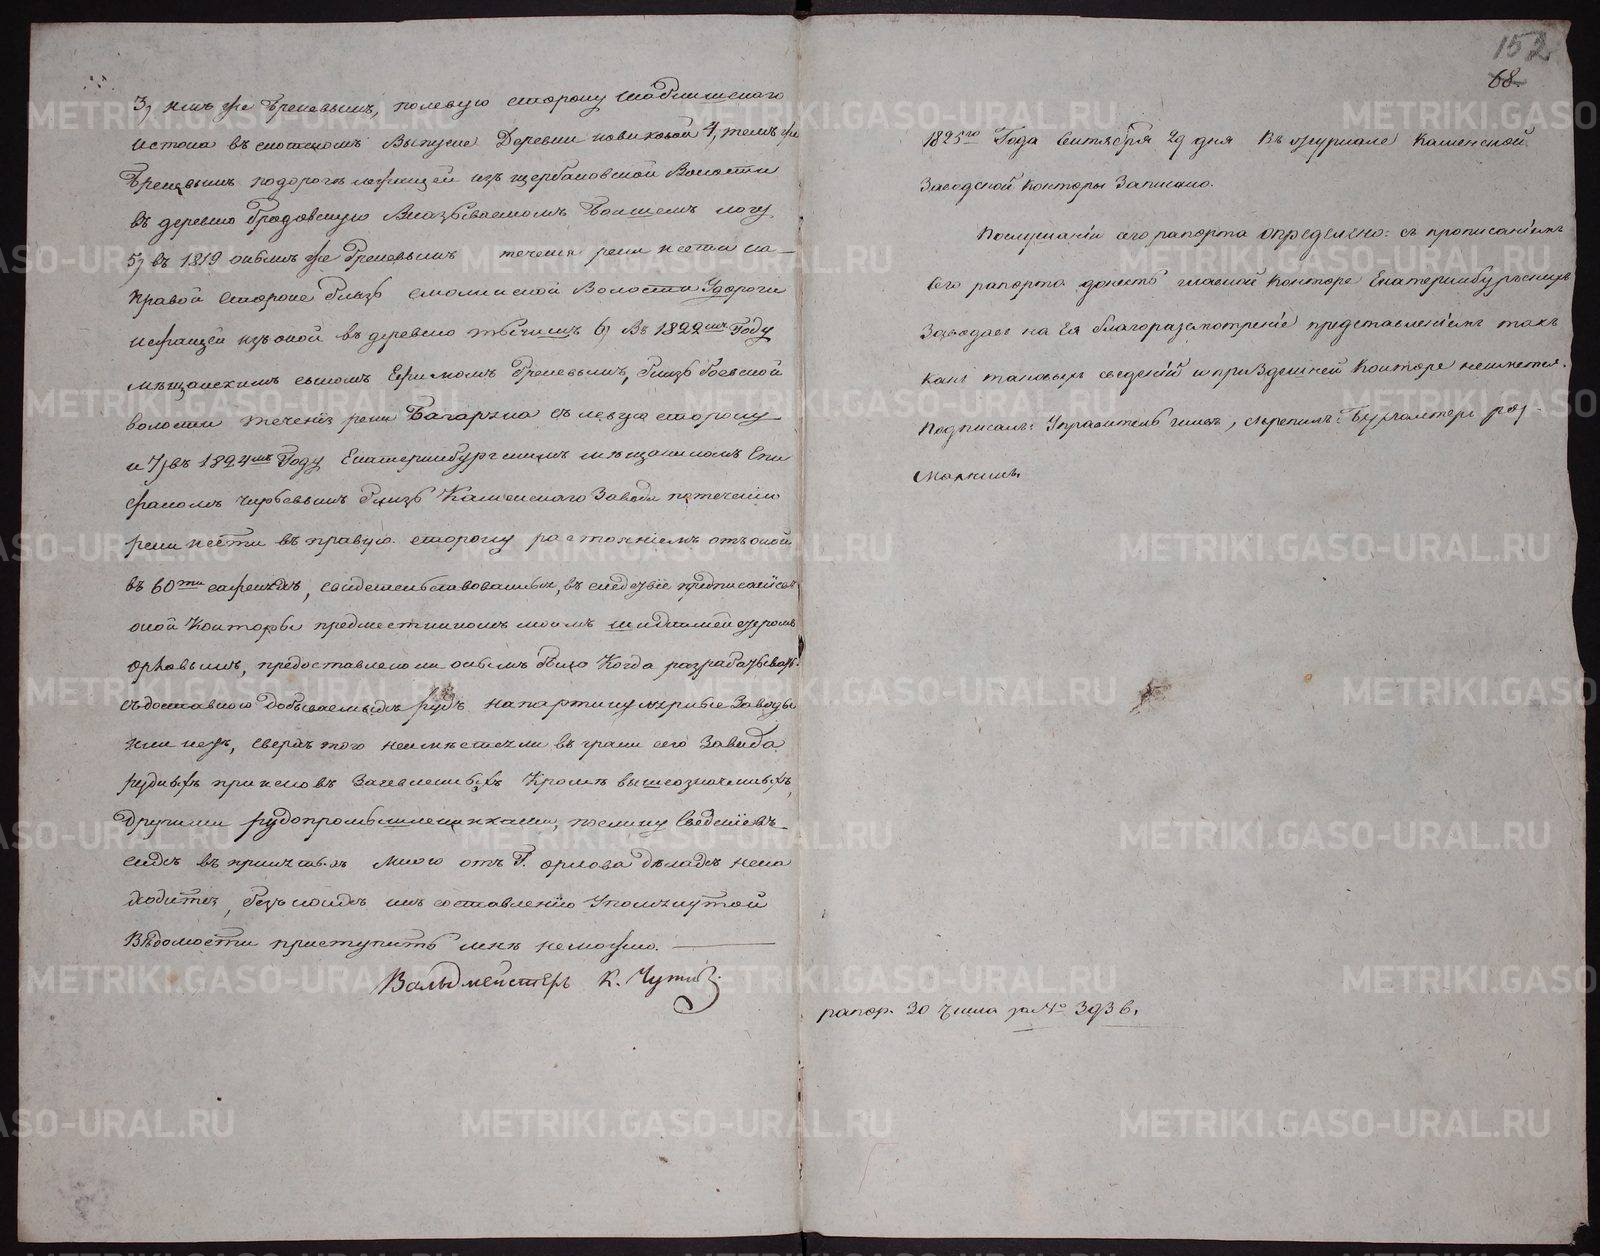 3, имъ же Треневымъ, полевую сторону
истока въ скотскомъ выпуске Деревни новиковой 4, темъ же
Треневымъ подороге лежащей изъ щербаковской Волости
въ деревню Бродовскую Вназываемомъ логу
5, въ 1819 онымъ же Треневымъ течения реки исети на
правой стороне близь смолинской Волости Удороги
лежащей изъ оной въ деревню 6, Въ 1822мъ Году
мещанскимъ сыномъ Ефимомъ Треневымъ, близь боевской
волости течения реки Багаряка слевую сторону
и 7, въ 1824мъ Году Екатеринбургскимъ мещаниномъ Епи
фаномъ близь Каменского Завода потечению
реки исети въ правую сторону растояниемъ отъ оной
въ 60ти саженяхъ, свидетельствованныхъ, въ следствие предписаний
оной Конторы предместникомъ моимъ
орловымъ, предоставлено ли онымъ было Когда разрабатывать
сдоставкою добываемыхъ рудъ Заводы
или нетъ, сверхъ того неимеется ли въ грани сего Завода
рудныхъ приисковъ Заявленныхъ Кроме вышеозначенныхъ,
другими рудопромышленниками, поелику Сведениевъ
сихъ въ принятыхъ мною отъ Г. орлова делахъ нена
ходится, безъ коихъ къ составлению Упомянутой
Ведомости приступить мне неможно.
Вальдмейстеръ К. Чутинъ
152
68
1825го Года Сентября 29 дня Въ журнале Каменской
Заводской Конторы Записано.
Послушании сего рапорта определено: съ прописаниемъ
Сего рапорта донесть главной Конторе Екатеринбургскихъ
Заводовъ на Ея благоразсмотрение представлениемъ такъ
какъ таковыхъ сведений и при Здешней Конторе неимеется.
Подписалъ: Управитель, скрепилъ: Бухгалтеръ
рапор. 30 Числа за № 3936,
METRIKI.GASO-URAL.RU